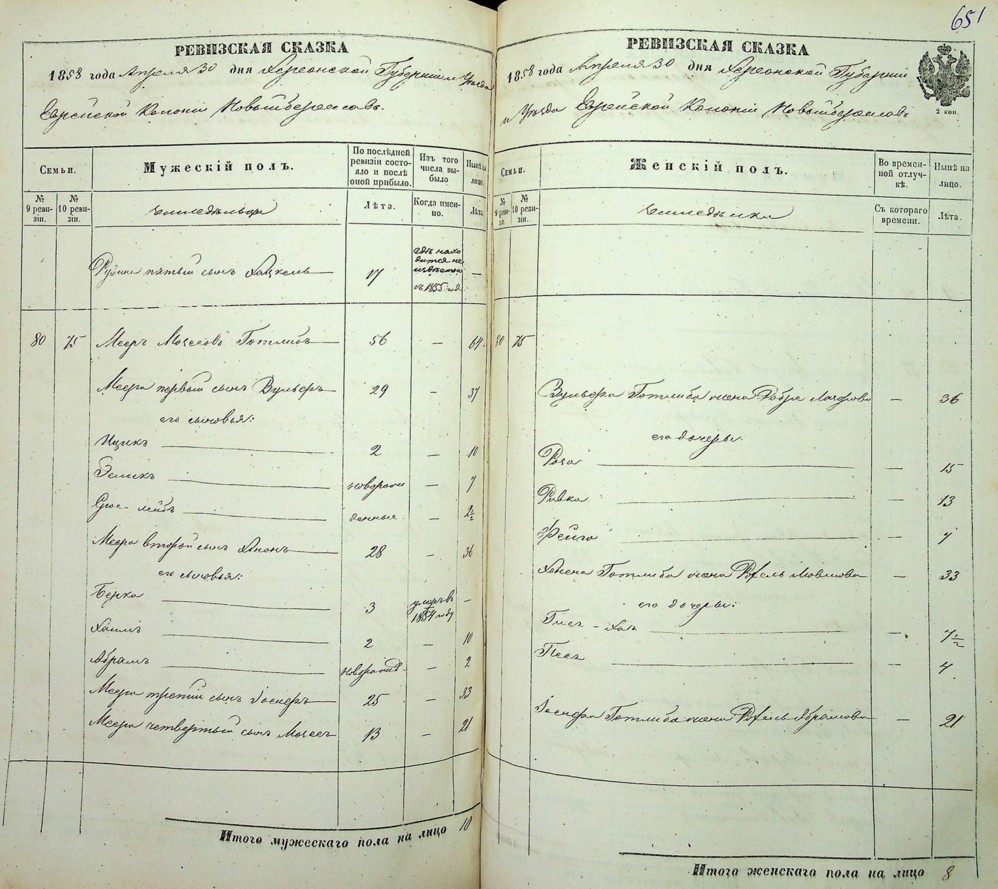 651
РЕВИЗСКАЯ СКАЗКА
1858 года Апреля 30 дня Херсонской Губерніи и Уезда
Еврейской Колоніи
Семьи.
Мужескій полъ.
По последней ревизіи состояло и после оной прибыло.
Изъ того числа выбыло
Ныне на лицо.
№ 9 ревизіи.
№ 10 ревизіи.
Лѣта.
Когда именно.
Лѣта.
Рувина пятый сынъ Хацкель 17 съ 1855 года —
80 75 Мееръ Мошковъ Готлибъ 56 — 64
Меера первый сынъ Вульфъ 29 — 37
его сыновья:
Ицикъ 2 — 10
новорож 7
Лейбъ денные — 2½
Меера второй сынъ Ханонъ 28 — 36
его сыновья:
Берко 3 умеръ въ 1854 году —
Хаимъ 2 — 10
Абрамъ новорожд. — 2
Меера третій сынъ Іосифъ 25 — 33
Меера четвертый сынъ Мошко 13 — 21
Итого мужескаго пола на лицо 10
РЕВИЗСКАЯ СКАЗКА
1858 года Апреля 30 дня Херсонской Губерніи
и Уезда Еврейской Колоніи
2 коп.
Семьи.
Женскій полъ.
Во временной отлучкѣ.
Нынѣ на лицо.
№ 9 ревизіи.
№ 10 ревизіи.
Съ котораго времени.
Лѣта.
80 75
Вульфа Готлиба жена Добра — 36
его дочери:
— 15
Ривка — 13
Фейга — 7
Ханона Готлиба жена — 33
его дочери:
Хая — 7½
Песя — 4
Іосифа Готлиба жена Абрамова — 21
Итого женскаго пола на лицо 8